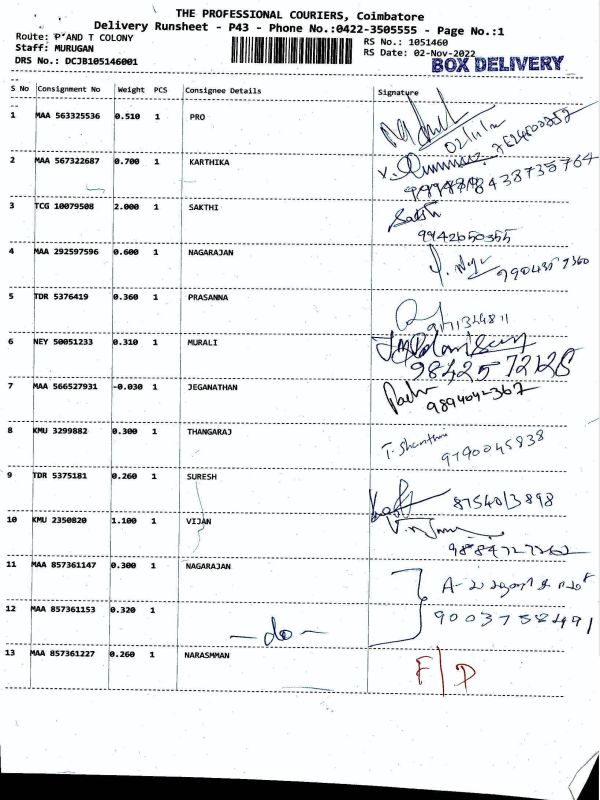 THE PROFESSIONAL COURIERS, Coimbatore
Delivery Runsheet - P43 - Phone No.:0422-3505555 - Page No.:1
Route: P AND T COLONY
Staff: MURUGAN
DRS No.: DCJB105146001
RS No.: 1051460
RS Date: 02-Nov-2022
BOX DELIVERY
S No Consignment No Weight PCS Consignee Details Signature
1 MAA 563325536 0.510 1 PRO
02/11/22
2 MAA 567322687 0.700 1 KARTHIKA
8438735764
3 TCG 10079508 2.000 1 SAKTHI Sakth
9942650355
4 MAA 292597596 0.600 1 NAGARAJAN
5 TDR 5376419 0.360 1 PRASANNA
6 NEY 50051233 0.310 1 MURALI
9842572128
7 MAA 566527931 -0.030 1 JEGANATHAN
8 KMU 3299882 0.300 1 THANGARAJ
9790045838
9 TDR 5375181 0.260 1 SURESH
8754013898
10 KMU 2350820 1.100 1 VIJAN
11 MAA 857361147 0.300 1 NAGARAJAN
12 MAA 857361153 0.320 1 -do- 9003758491
13 MAA 857361227 0.260 1 NARASMMAN F/D